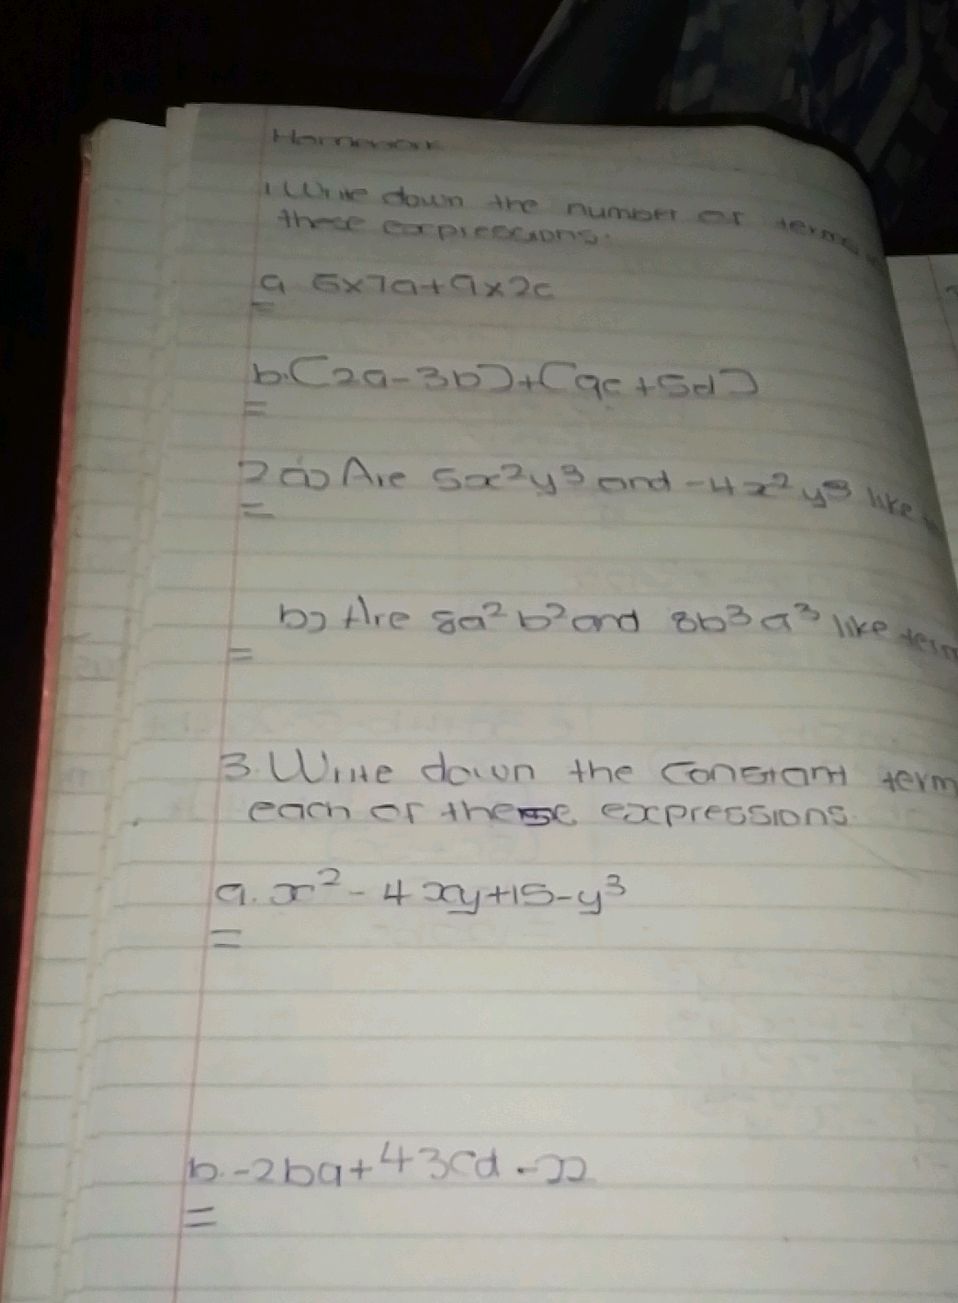 Homework
1. Write down the number of terms
these expressions.
a 6x7a+9x2c
=
b.(2a-3b)+(9c+5d)
=
2 a) Are 5x²y³ and -4x²y³ like
=
b) Are 8a²b² and 8b³a³ like term
=
3. Write down the constant term
each of these expressions.
a. x² - 4xy+15-y³
=
b. -2ba+43cd - 22
=